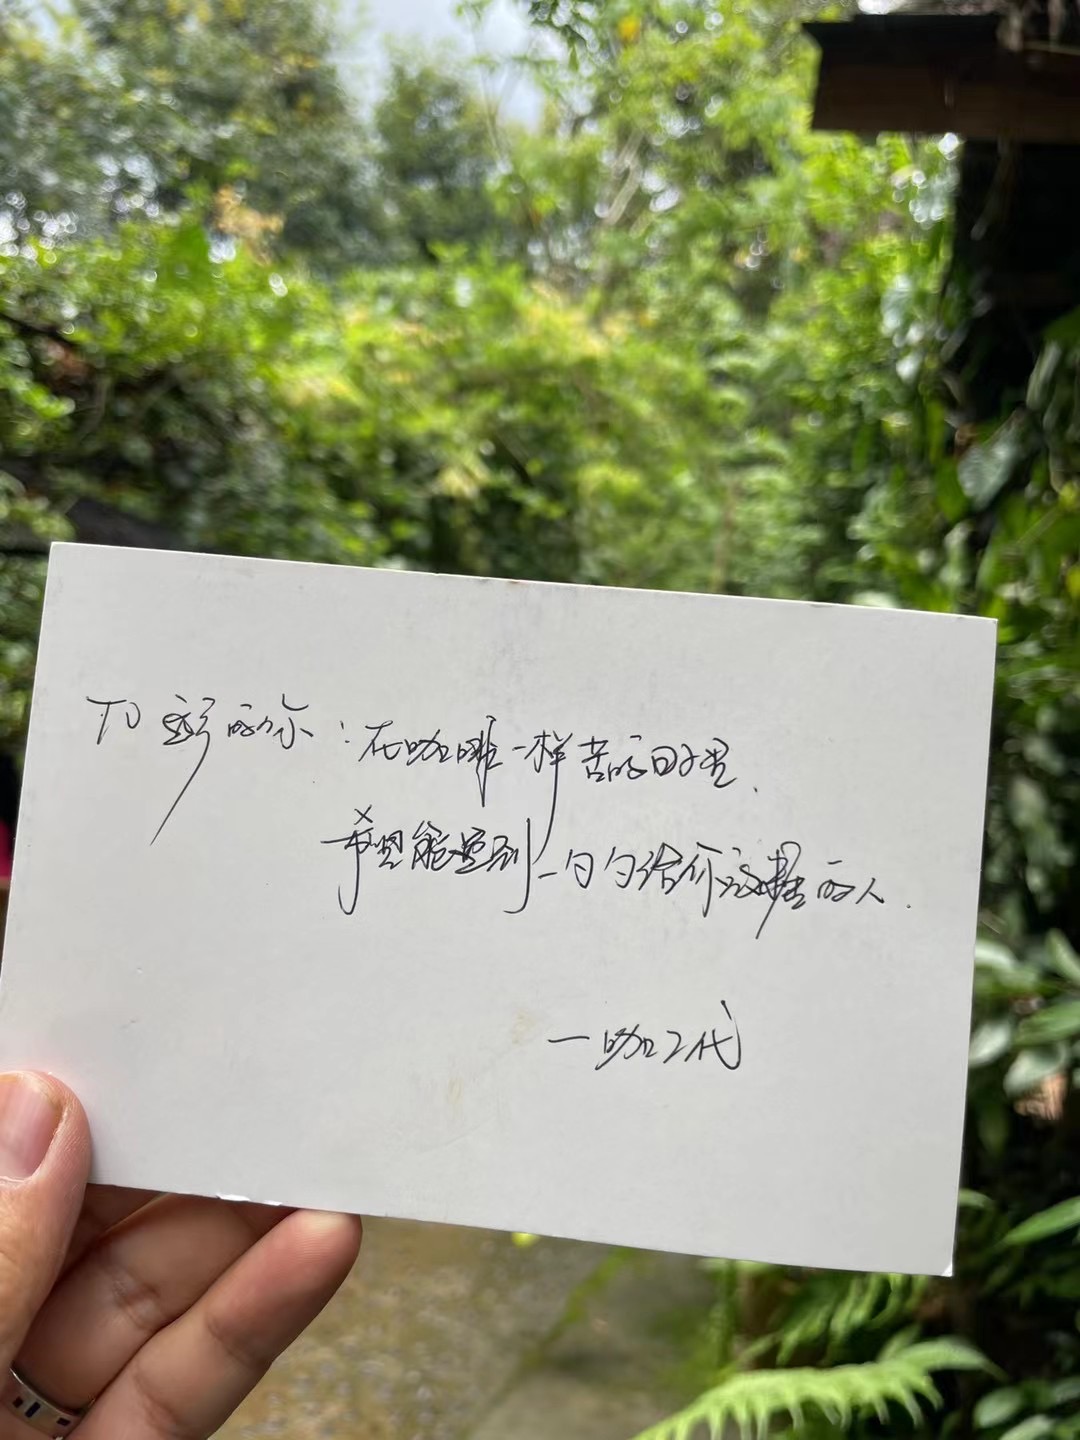 TO 的你：在咖啡一样苦的日子里.
希望能遇到一勺勺给你这糖的人.
一咖2代